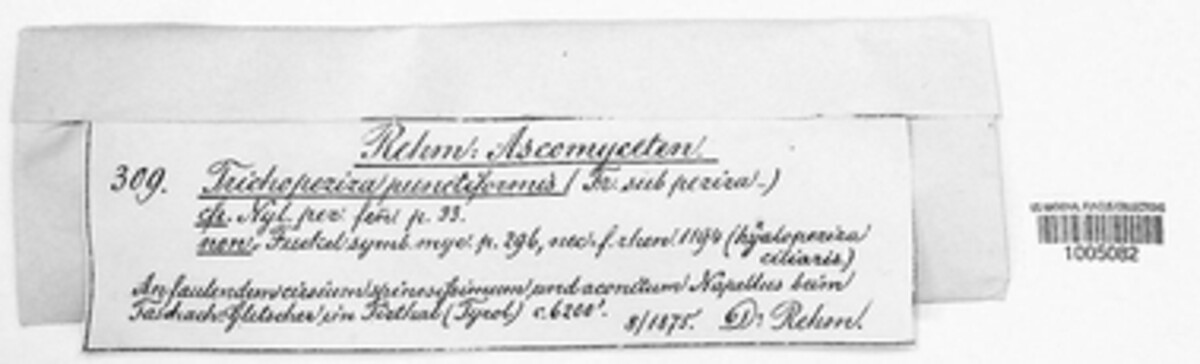 Rehm: Ascomyceten.
309. Trichopeziza punctiformis (Fr. sub peziza.)
cfr. Nyl. pez. fen. p. 33.
non. Fuckel symb. myc. p. 296, nec. f. rhen 1194 (hyalopeziza
ciliaris)
An faulendem cirsium spinosissimum und aconitum Napellus beim
Taschach-Gletscher im Pitzthal (Tyrol) c. 6200'.
8/1875. Dr Rehm.
US NATIONAL FUNGUS COLLECTIONS
1005082